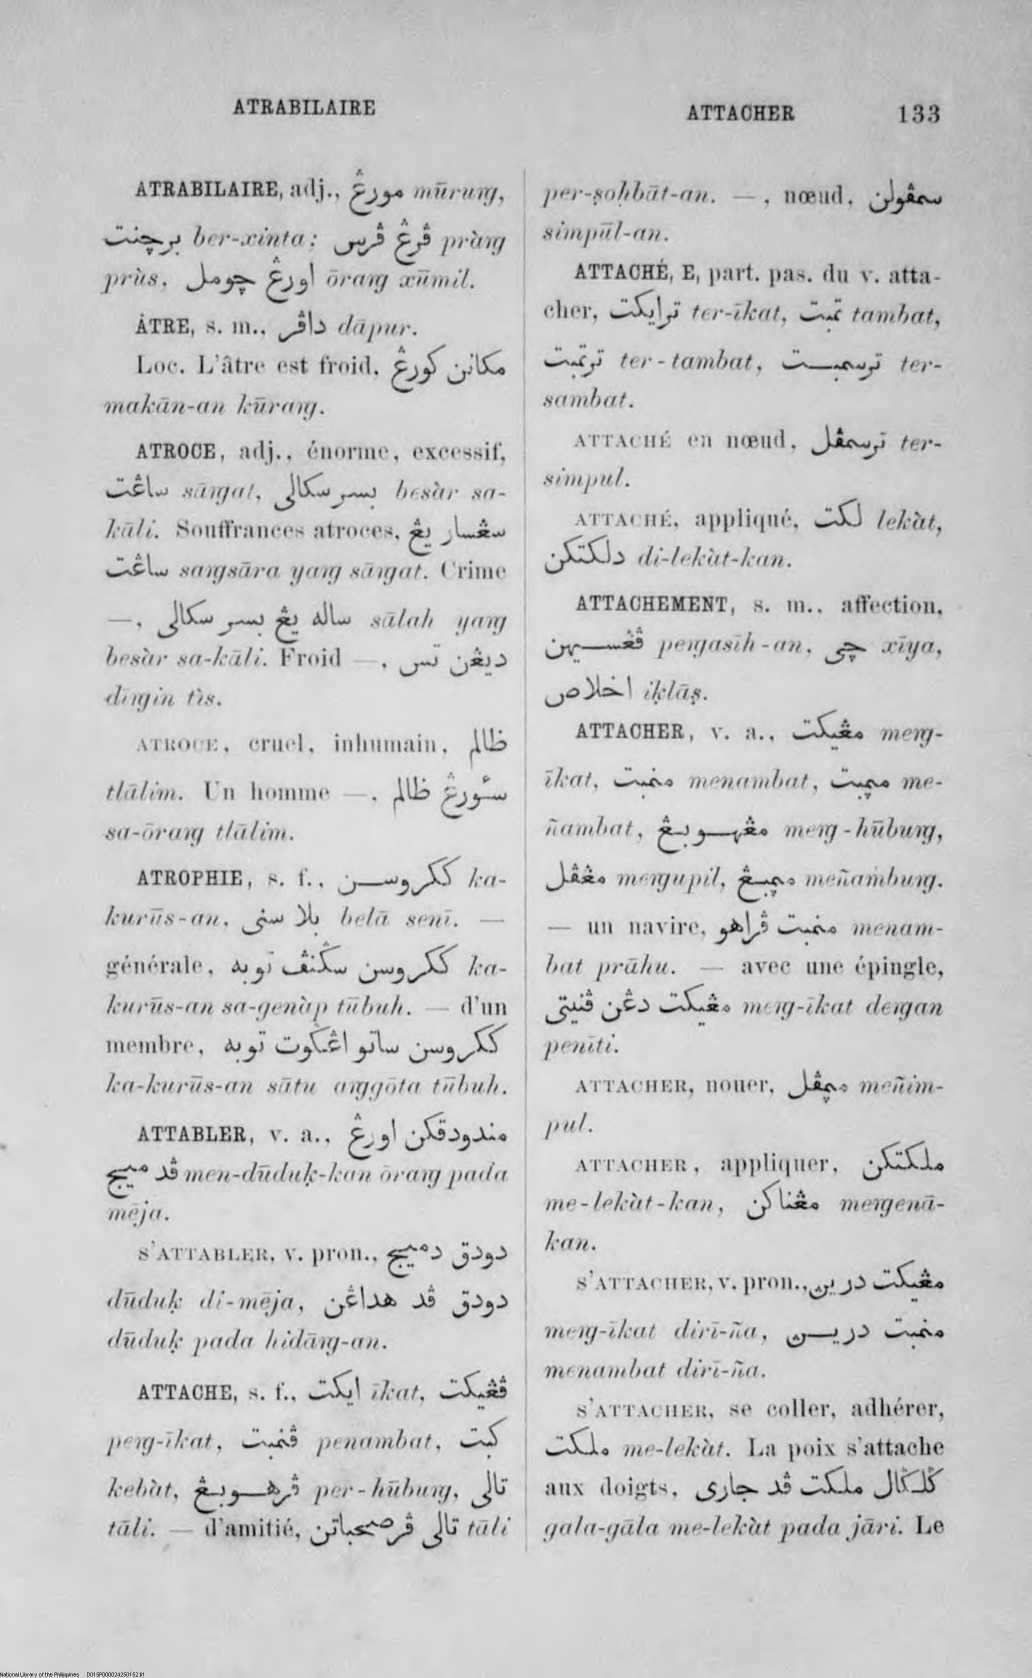 ATRABILAIRE
ATTACHER 133
ATRABILAIRE, adj., مورڠ mūruṅg,
برچنت ber-xinta; ڤرڠ ڤرس pràṅg
prùs, اورڠ چومل ōraṅg xūmil.
ÂTRE, s. m., داڤر dāpur.
Loc. L'âtre est froid, مكانن كورڠ
makān-an kūraṅg.
ATROCE, adj., énorme, excessif,
ساڠت sāṅgat, بسر سكالى besàr sa-
kāli. Souffrances atroces, سڠسار يڠ
ساڠت saṅgsāra yaṅg sāṅgat. Crime
—, ساله يڠ بسر سكالى sālah yaṅg
besàr sa-kāli. Froid —, ديڠن تس
diṅgin tìs.
ATROCE, cruel, inhumain, ظالم
tlālim. Un homme —, سئورڠ ظالم
sa-ōraṅg tlālim.
ATROPHIE, s. f., ككروسن ka-
kurūs-an, بلا سنى belā senī. —
générale, ككروسن سڬنڤ توبه ka-
kurūs-an sa-genàp tūbuh. — d'un
membre, ككروسن ساتو اڠݢوت توبه
ka-kurūs-an sātu aṅggōta tūbuh.
ATTABLER, v. a., مندودقكن اورڠ
ڤد ميج men-dūduḳ-kan ōraṅg pada
mēja.
S'ATTABLER, v. pron., دودق دميج
dūduḳ di-mēja, دودق ڤد هداڠن
dūduḳ pada hidāṅg-an.
ATTACHE, s. f., ايكت īkat, ڤڠيكت
peṅg-īkat, ڤنمبت penambat, كبت
kebàt, ڤرهوبڠ per-hūbuṅg, تالى
tāli. — d'amitié, تالى ڤرصحباتن tāli
per-ṣoḥbāt-an. —, nœud, سمڤولن
simpūl-an.
ATTACHÉ, E, part. pas. du v. atta-
cher, ترايكت ter-īkat, تمبت tambat,
ترتمبت ter-tambat, ترسمبت ter-
sambat.
ATTACHÉ en nœud, ترسمڤل ter-
simpul.
ATTACHÉ, appliqué, لكت lekàt,
دلكتكن di-lekàt-kan.
ATTACHEMENT, s. m., affection,
ڤڠسيهن peṅgasīh-an, چى xīya,
اخلاص iḳlāṣ.
ATTACHER, v. a., مڠيكت meṅg-
īkat, منمبت menambat, مڽمبت me-
ñambat, مڠهوبڠ meṅg-hūbuṅg,
مڠڤل meṅgupil, مڽمبڠ meñambuṅg.
— un navire, منمبت ڤراهو menam-
bat prāhu. — avec une épingle,
مڠيكت دڠن ڤنيتى meṅg-īkat deṅgan
penīti.
ATTACHER, nouer, مڽمڤل meñim-
pul.
ATTACHER, appliquer, ملكتكن
me-lekàt-kan, مڠناكن meṅgenā-
kan.
S'ATTACHER, v. pron., مڠيكت ديرين
meṅg-īkat dirī-ña, منمبت ديرين
menambat dirī-ña.
S'ATTACHER, se coller, adhérer,
ملكت me-lekàt. La poix s'attache
aux doigts, ڬلڬال ملكت ڤد جارى
gala-gāla me-lekàt pada jāri. Le
National Library of the Philippines